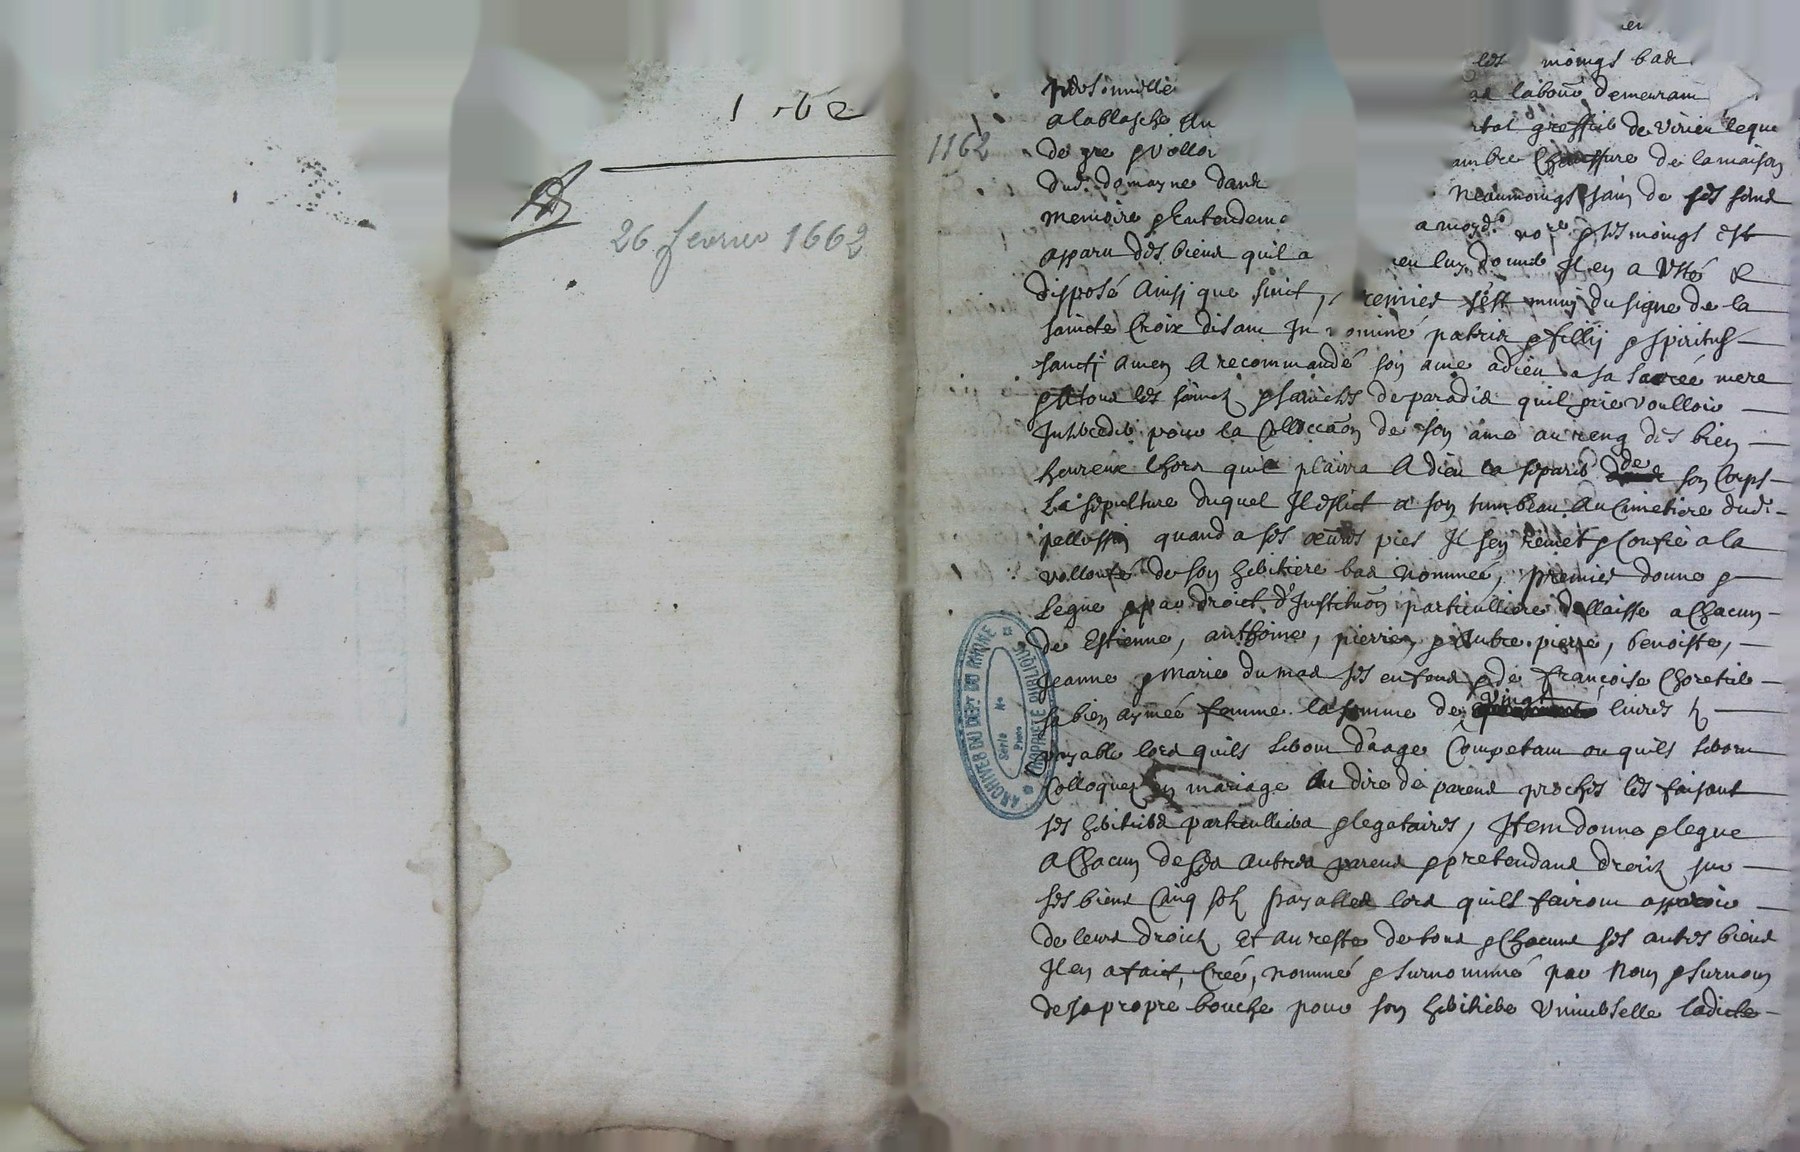 1662
26 fevrier 1662
1162
ARCHIVES DU DEPT DU RHONE
PROPRIETE PUBLIQUE
Serie No
Piece
les moings bas
personnelle
labour demeurant
a lablasche
greffier de virieu leque
de gre
de la maison
dud. domayne
neaumoings sain de ses sens
memoire
moings est
apparu des biens quil a
Il en a usé &
disposé Ainsi que suict, premier s'est muny du signe de la
saincte Croix disant In nomine patris & fillij & spiritus
sancti amen A recommandé son ame a dieu a sa sacrée mere
tous les sainctz & sainctes de paradis quil prie voulloir
Interceder pour la Colloccaon de son ame au reng des bien
heureux lhors quil plairra A dieu la separer de son Corps
La sepulture duquel Il eslict a son tumbeau Au Cimetiere dudt
pellussin quand a ses œuvres pies Il sen remet & Confie a la
vollonté de son heritiere bas nommée, premier donne &
legue & par droict d'Institution particulliere dellaisse a Chacun
de Estienne, anthoine, pierre, & Autre pierre, benoiste,
Jeanne & Marie dumas ses enfans & de françoise Choretier
sa bien aymée femme la somme de vingt livres tz
payable lors quils seront d'aage Competant ou quils seront
Colloquez en mariage Au dire de parens proches les faisant
ses heritiers particulliers & legataires, Item donne & legue
A Chacun de ses Autres parens & pretendans droictz sur
ses biens Cinq solz payables lors quils fairont apparoir
de leurs droictz Et au reste de tous & Chacuns ses autres biens
Il en a faict, Creé, nommé & surnommé par Nom & surnom
de sa propre bouche pour son heritiere Universelle ladicte